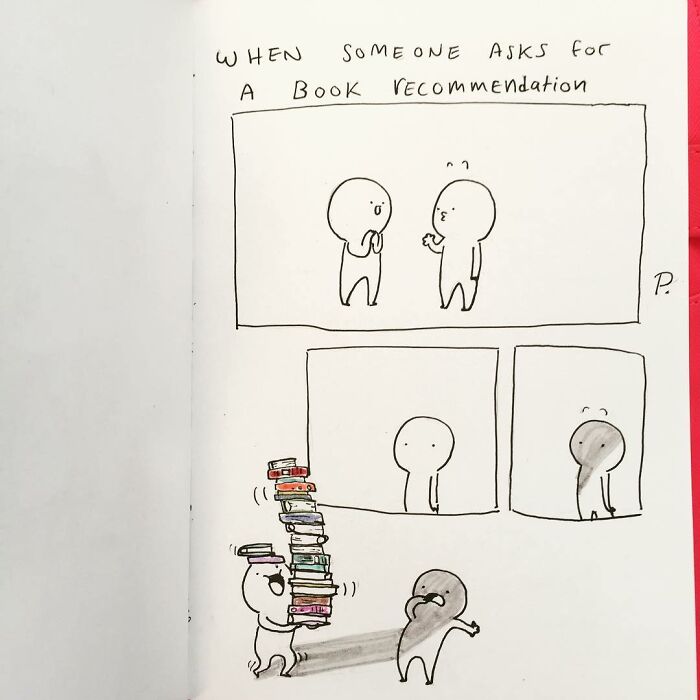 WHEN SOMEONE ASKS For
A BOOK recommendation
P.